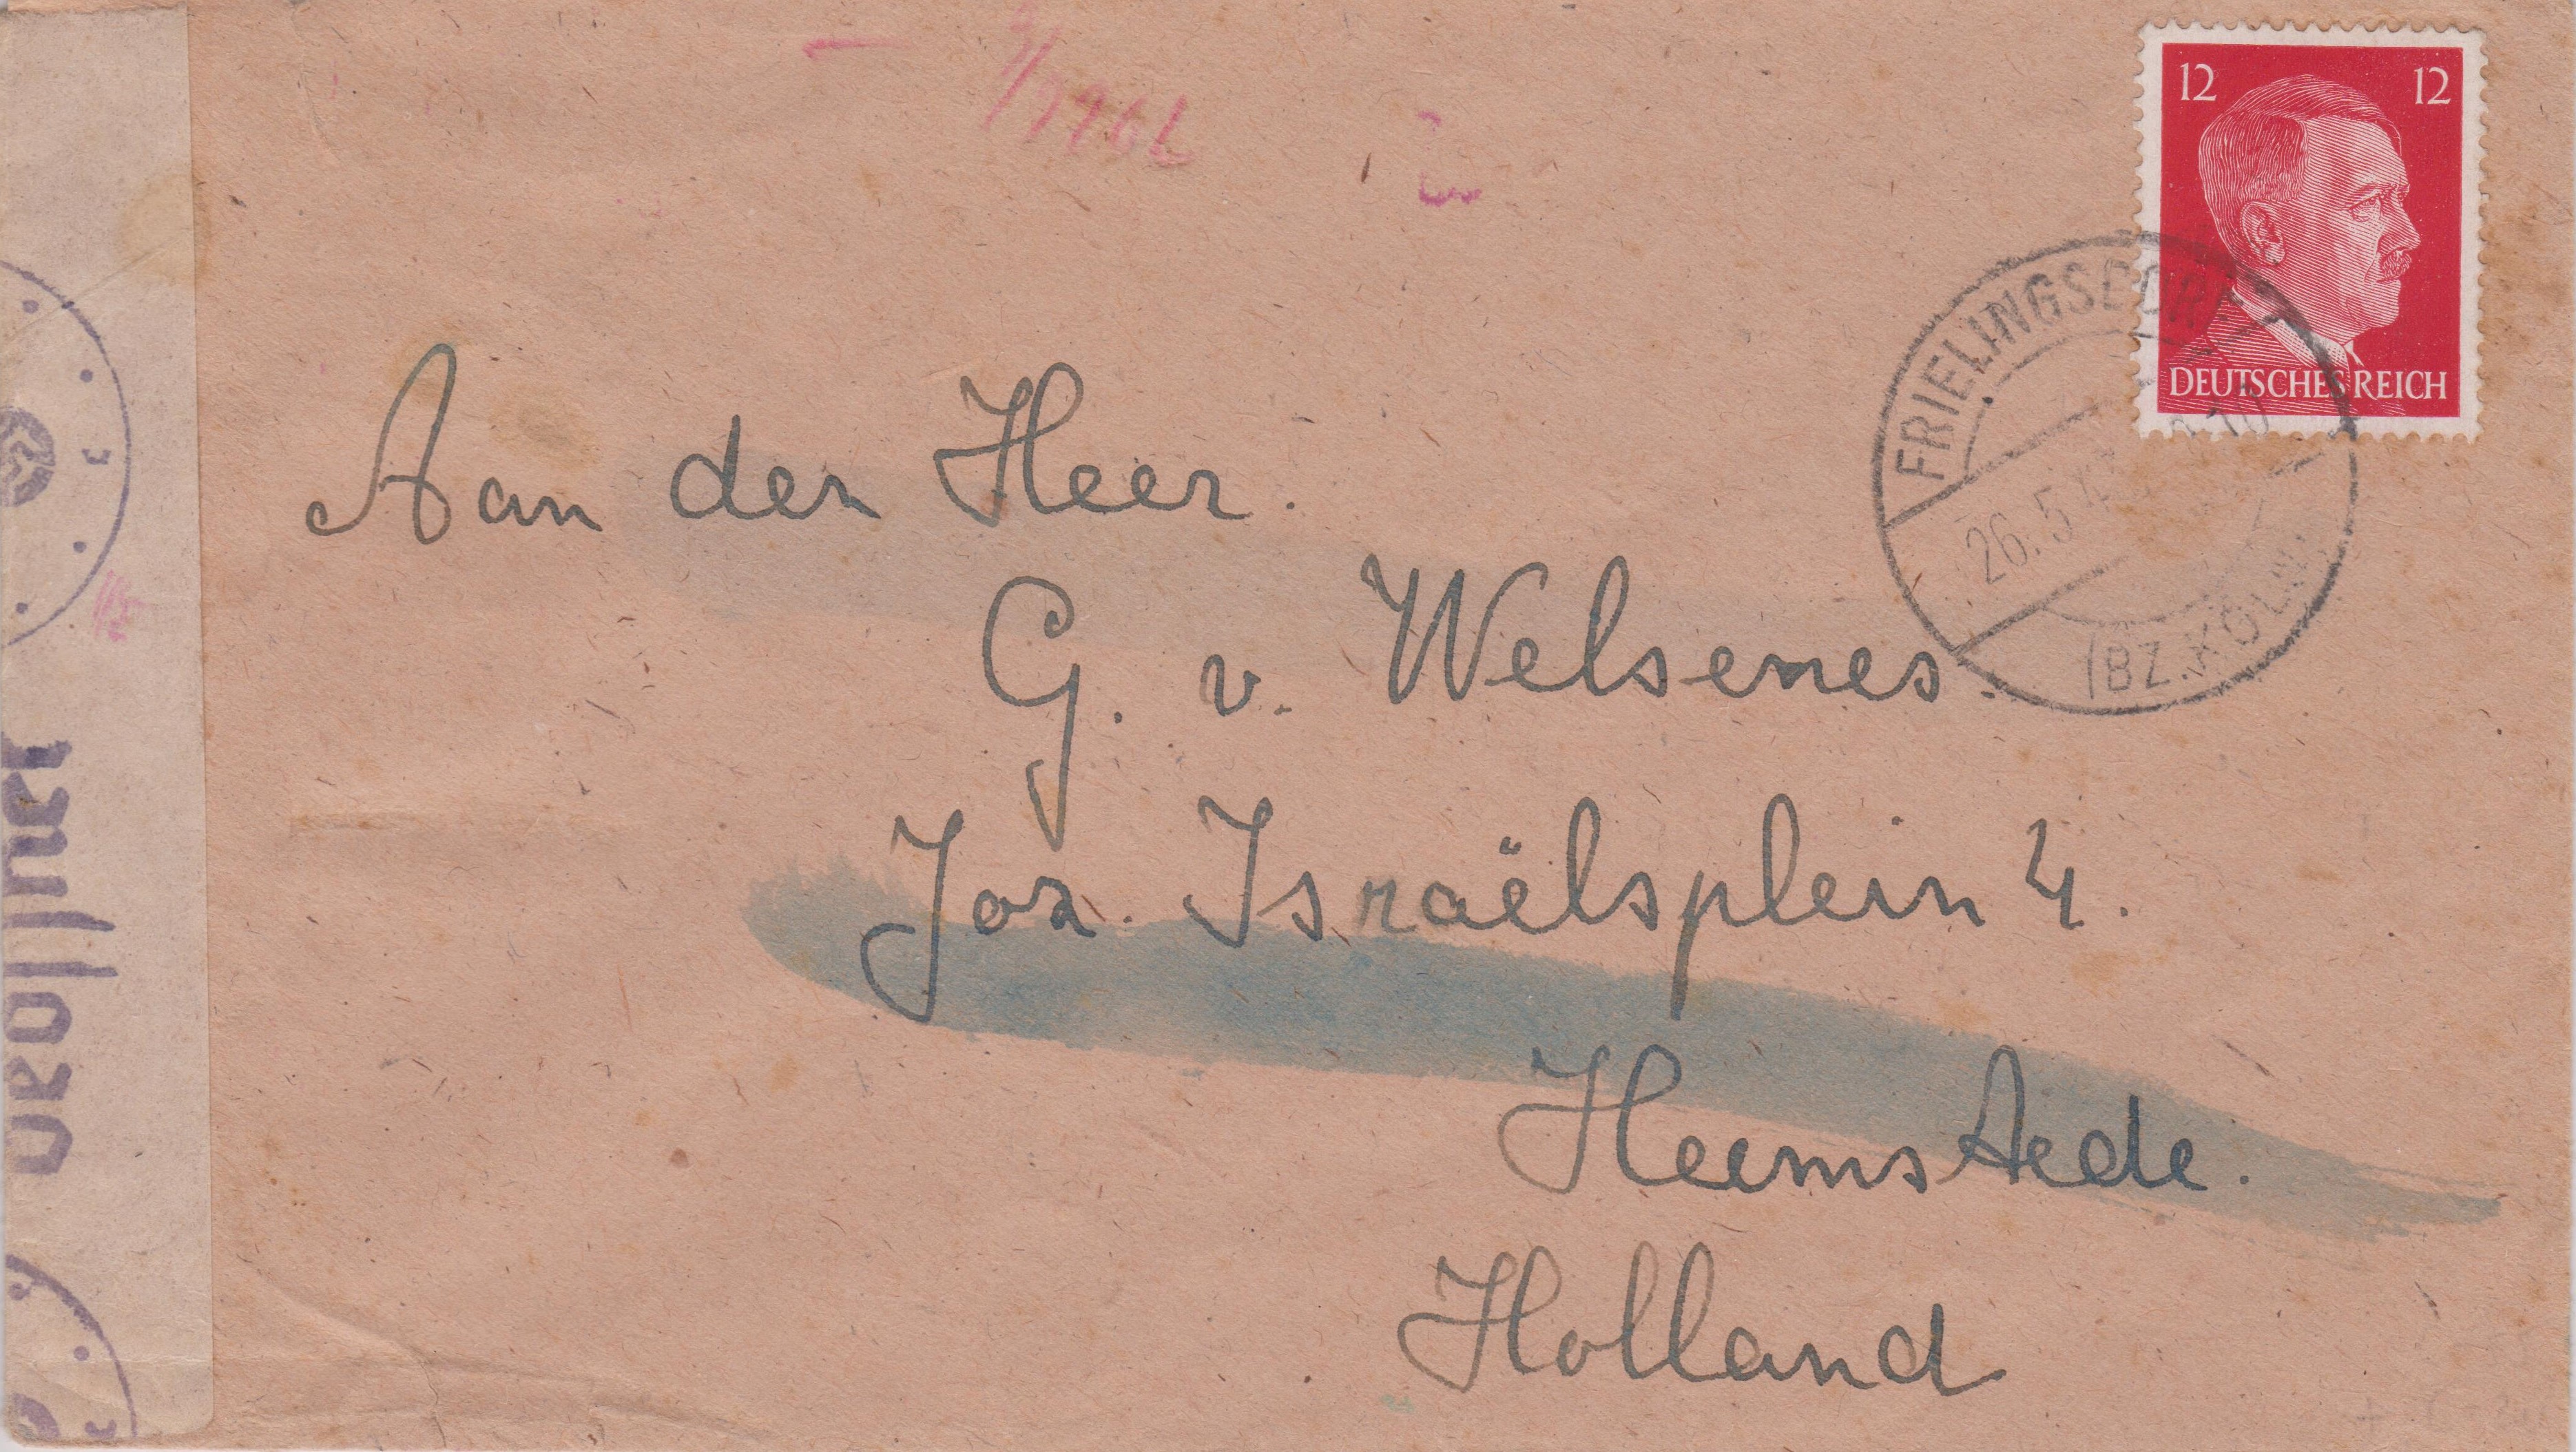 12 12
DEUTSCHES REICH
FRIELINGSDORF
26.5.4
(BZ. KÖLN)
Aan den Heer.
G. v. Welsenes.
Joz. Israëlsplein 4.
Heemstede.
Holland
Geöffnet